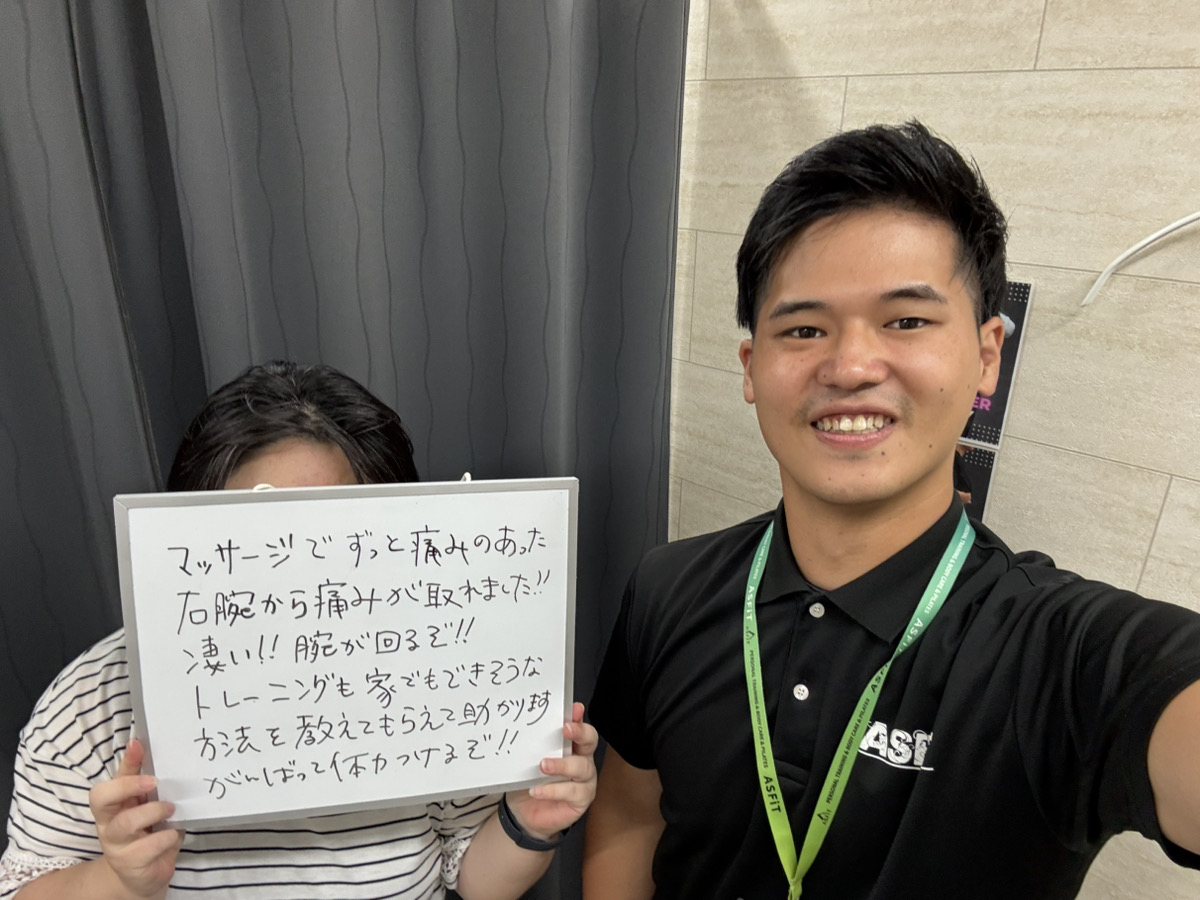 マッサージでずっと痛みのあった
右腕から痛みが取れました!!
凄い!! 腕が回るぞ!!
トレーニングも家でもできそうな
方法を教えてもらえて助かります
がんばって体力つけるぞ!!
ASFiT PERSONAL TRAINING & BODY CARE & PILATES ASFiT
ASFiT PERSONAL TRAINING & BODY CARE & PILATES
ASF
ER